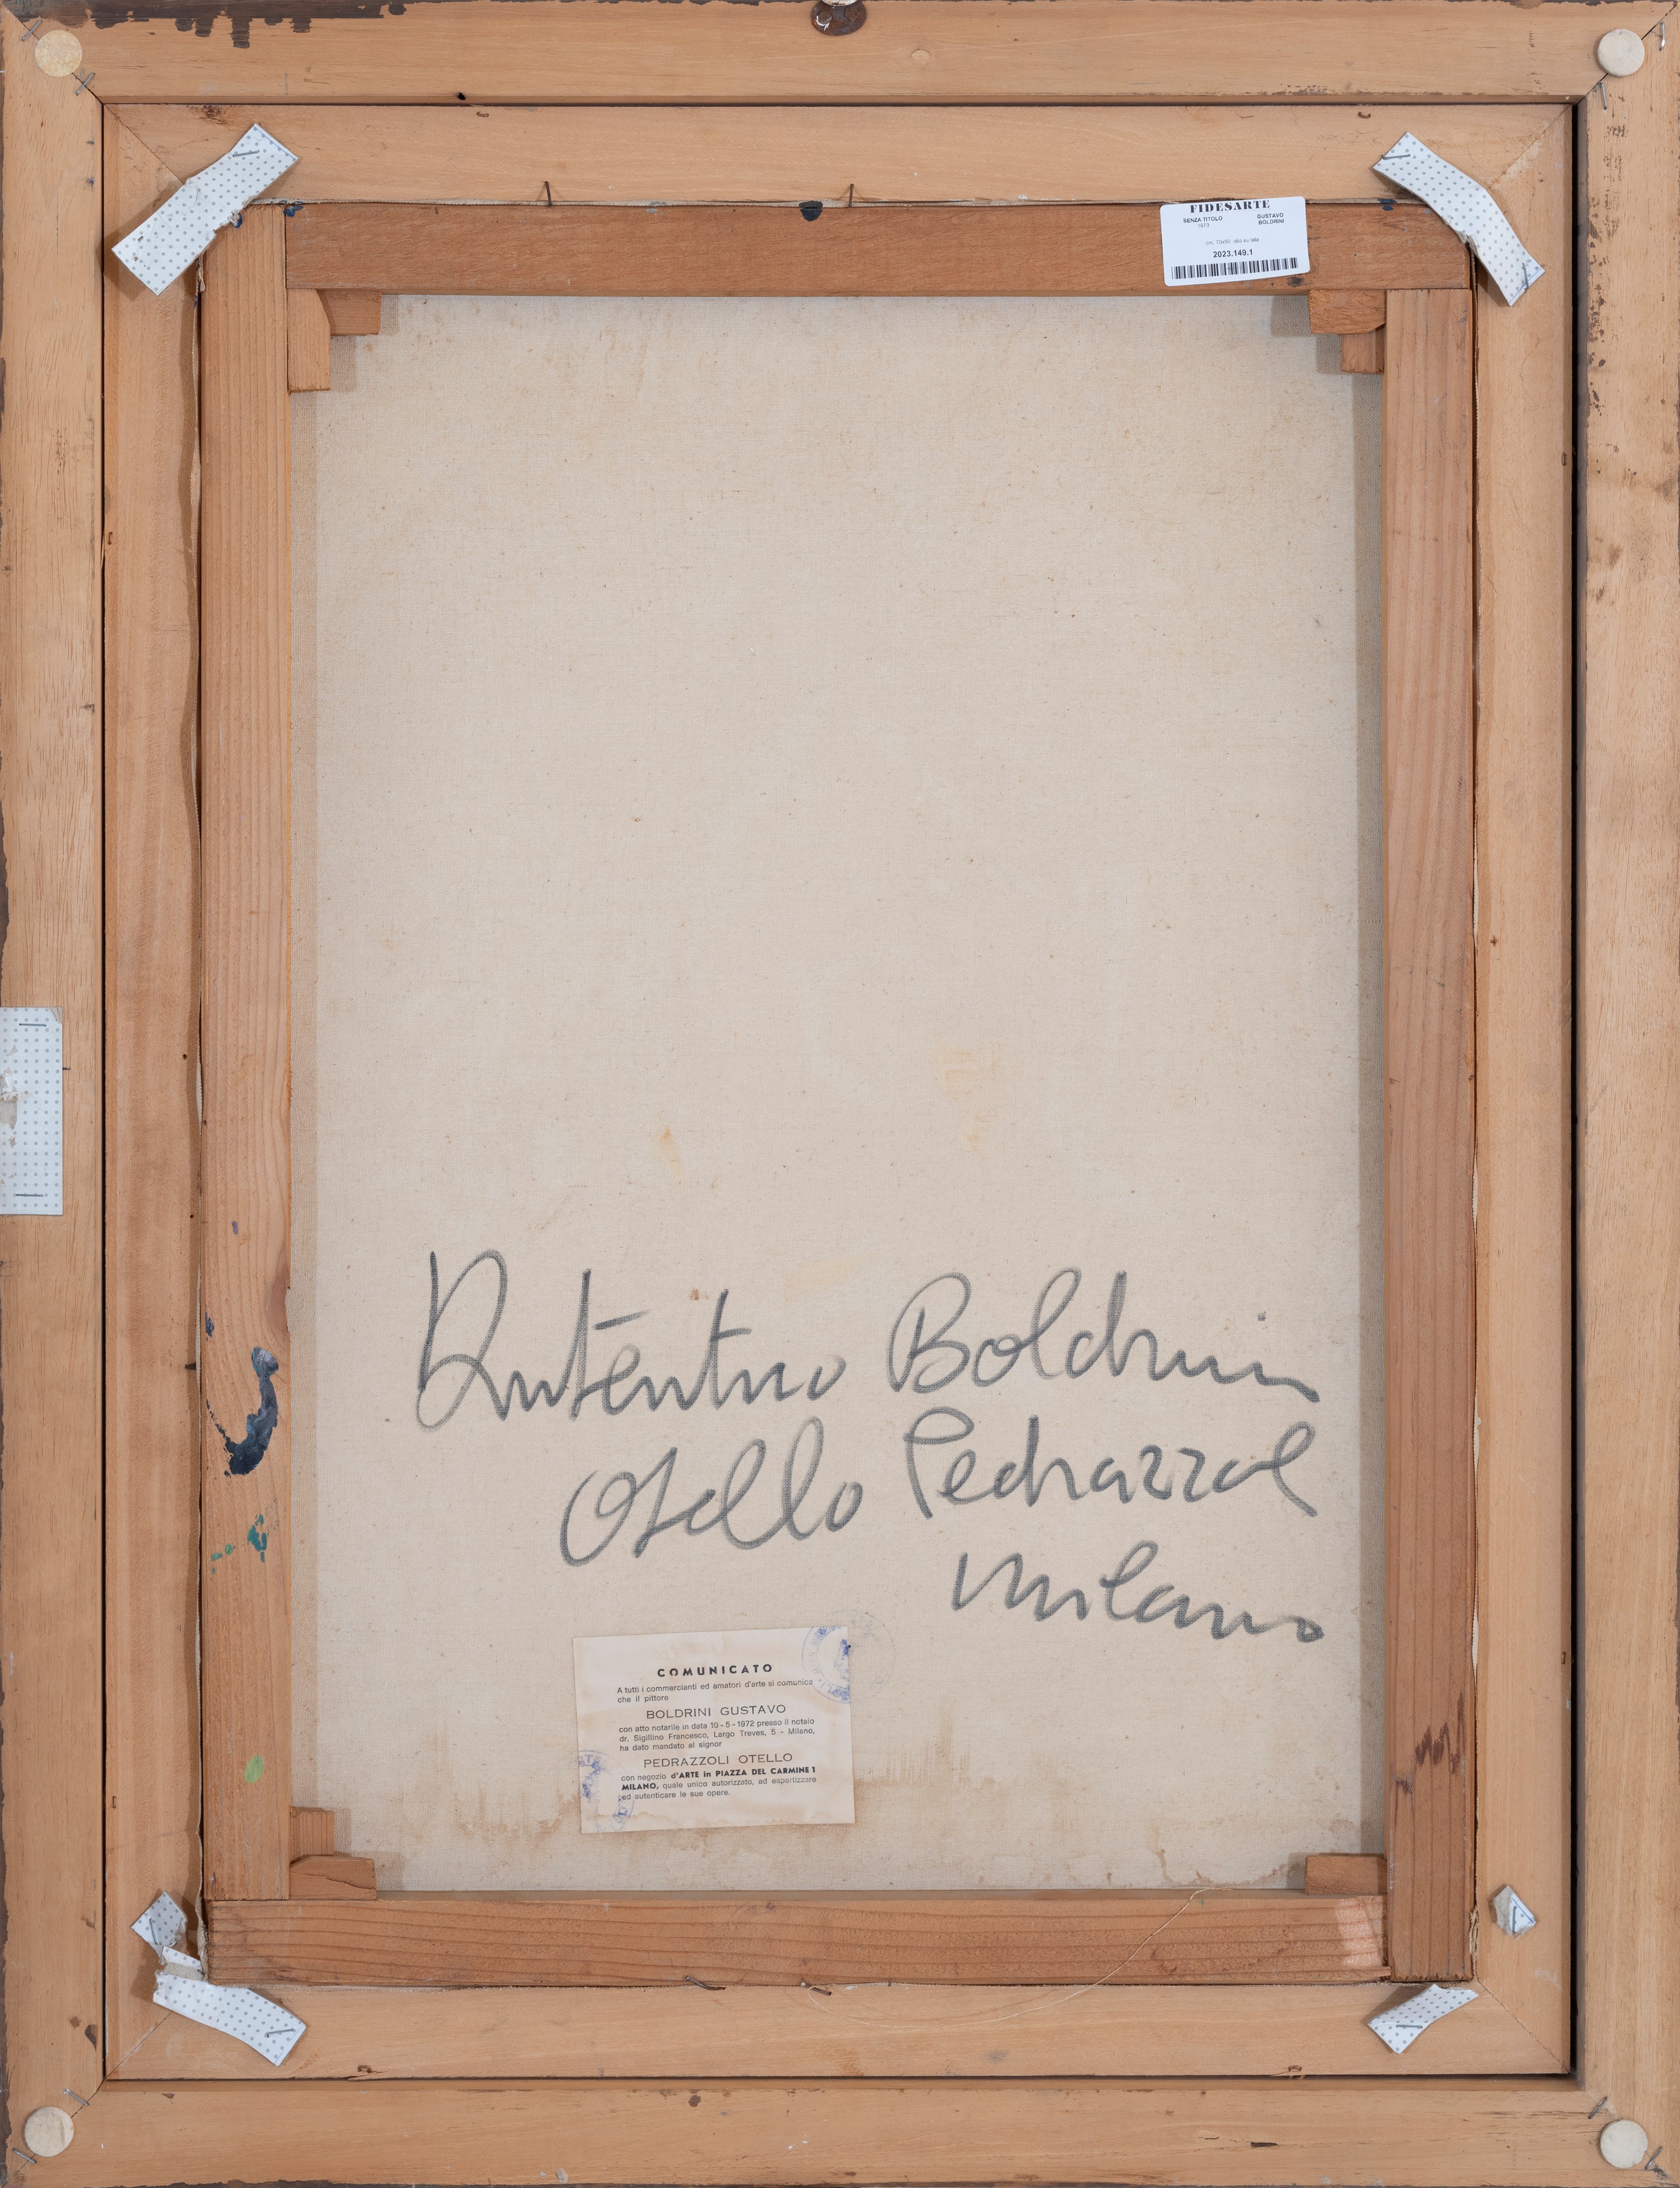 FIDESARTE
SENZA TITOLO GUSTAVO
1973 BOLDRINI
cm. 70x50, olio su tela
2023.149.1
Autentico Boldrini
Otello Pedrazzoli
Milano
COMUNICATO
A tutti i commercianti ed amatori d'arte si comunica
che il pittore
BOLDRINI GUSTAVO
con atto notarile in data 10-5-1972 presso il notaio
dr. Sigillino Francesco, Largo Treves, 5 - Milano,
ha dato mandato al signor
PEDRAZZOLI OTELLO
con negozio d'ARTE in PIAZZA DEL CARMINE 1
MILANO, quale unico autorizzato, ad espertizzare
ed autenticare le sue opere.